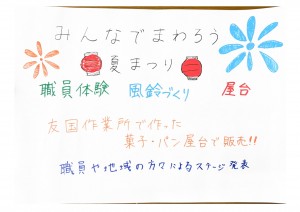 みんなでまわろう
夏まつり
職員体験 風鈴づくり 屋台
友国作業所で作った
菓子・パン屋台で販売!!
職員や地域の方々によるステージ発表